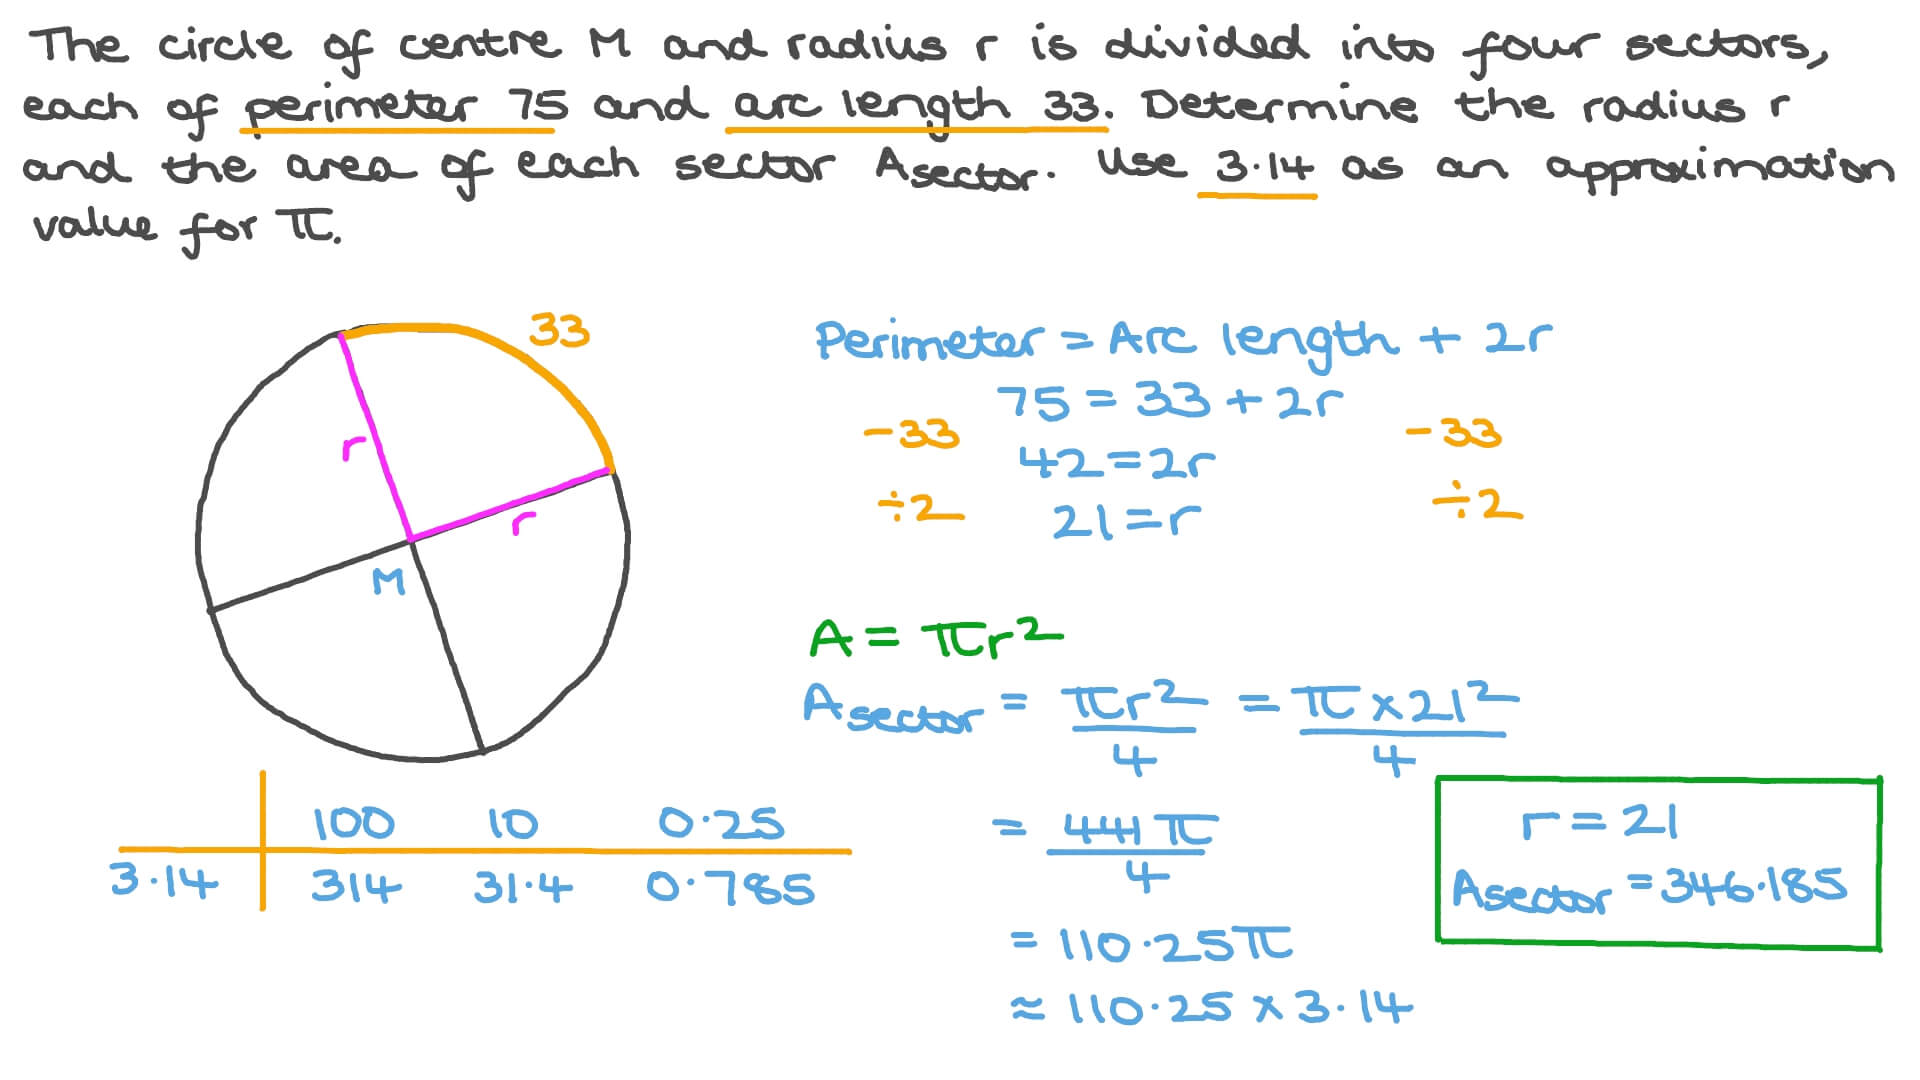 The circle of centre M and radius r is divided into four sectors,
each of perimeter 75 and arc length 33. Determine the radius r
and the area of each sector Asector. Use 3.14 as an approximation
value for π.
33
r
r
M
Perimeter = Arc length + 2r
75 = 33 + 2r
-33 -33
42 = 2r
÷2 ÷2
21 = r
A = πr²
Asector = πr²/4 = π × 21²/4
= 441π/4
= 110.25π
≈ 110.25 × 3.14
100 10 0.25
3.14 314 31.4 0.785
r = 21
Asector = 346.185